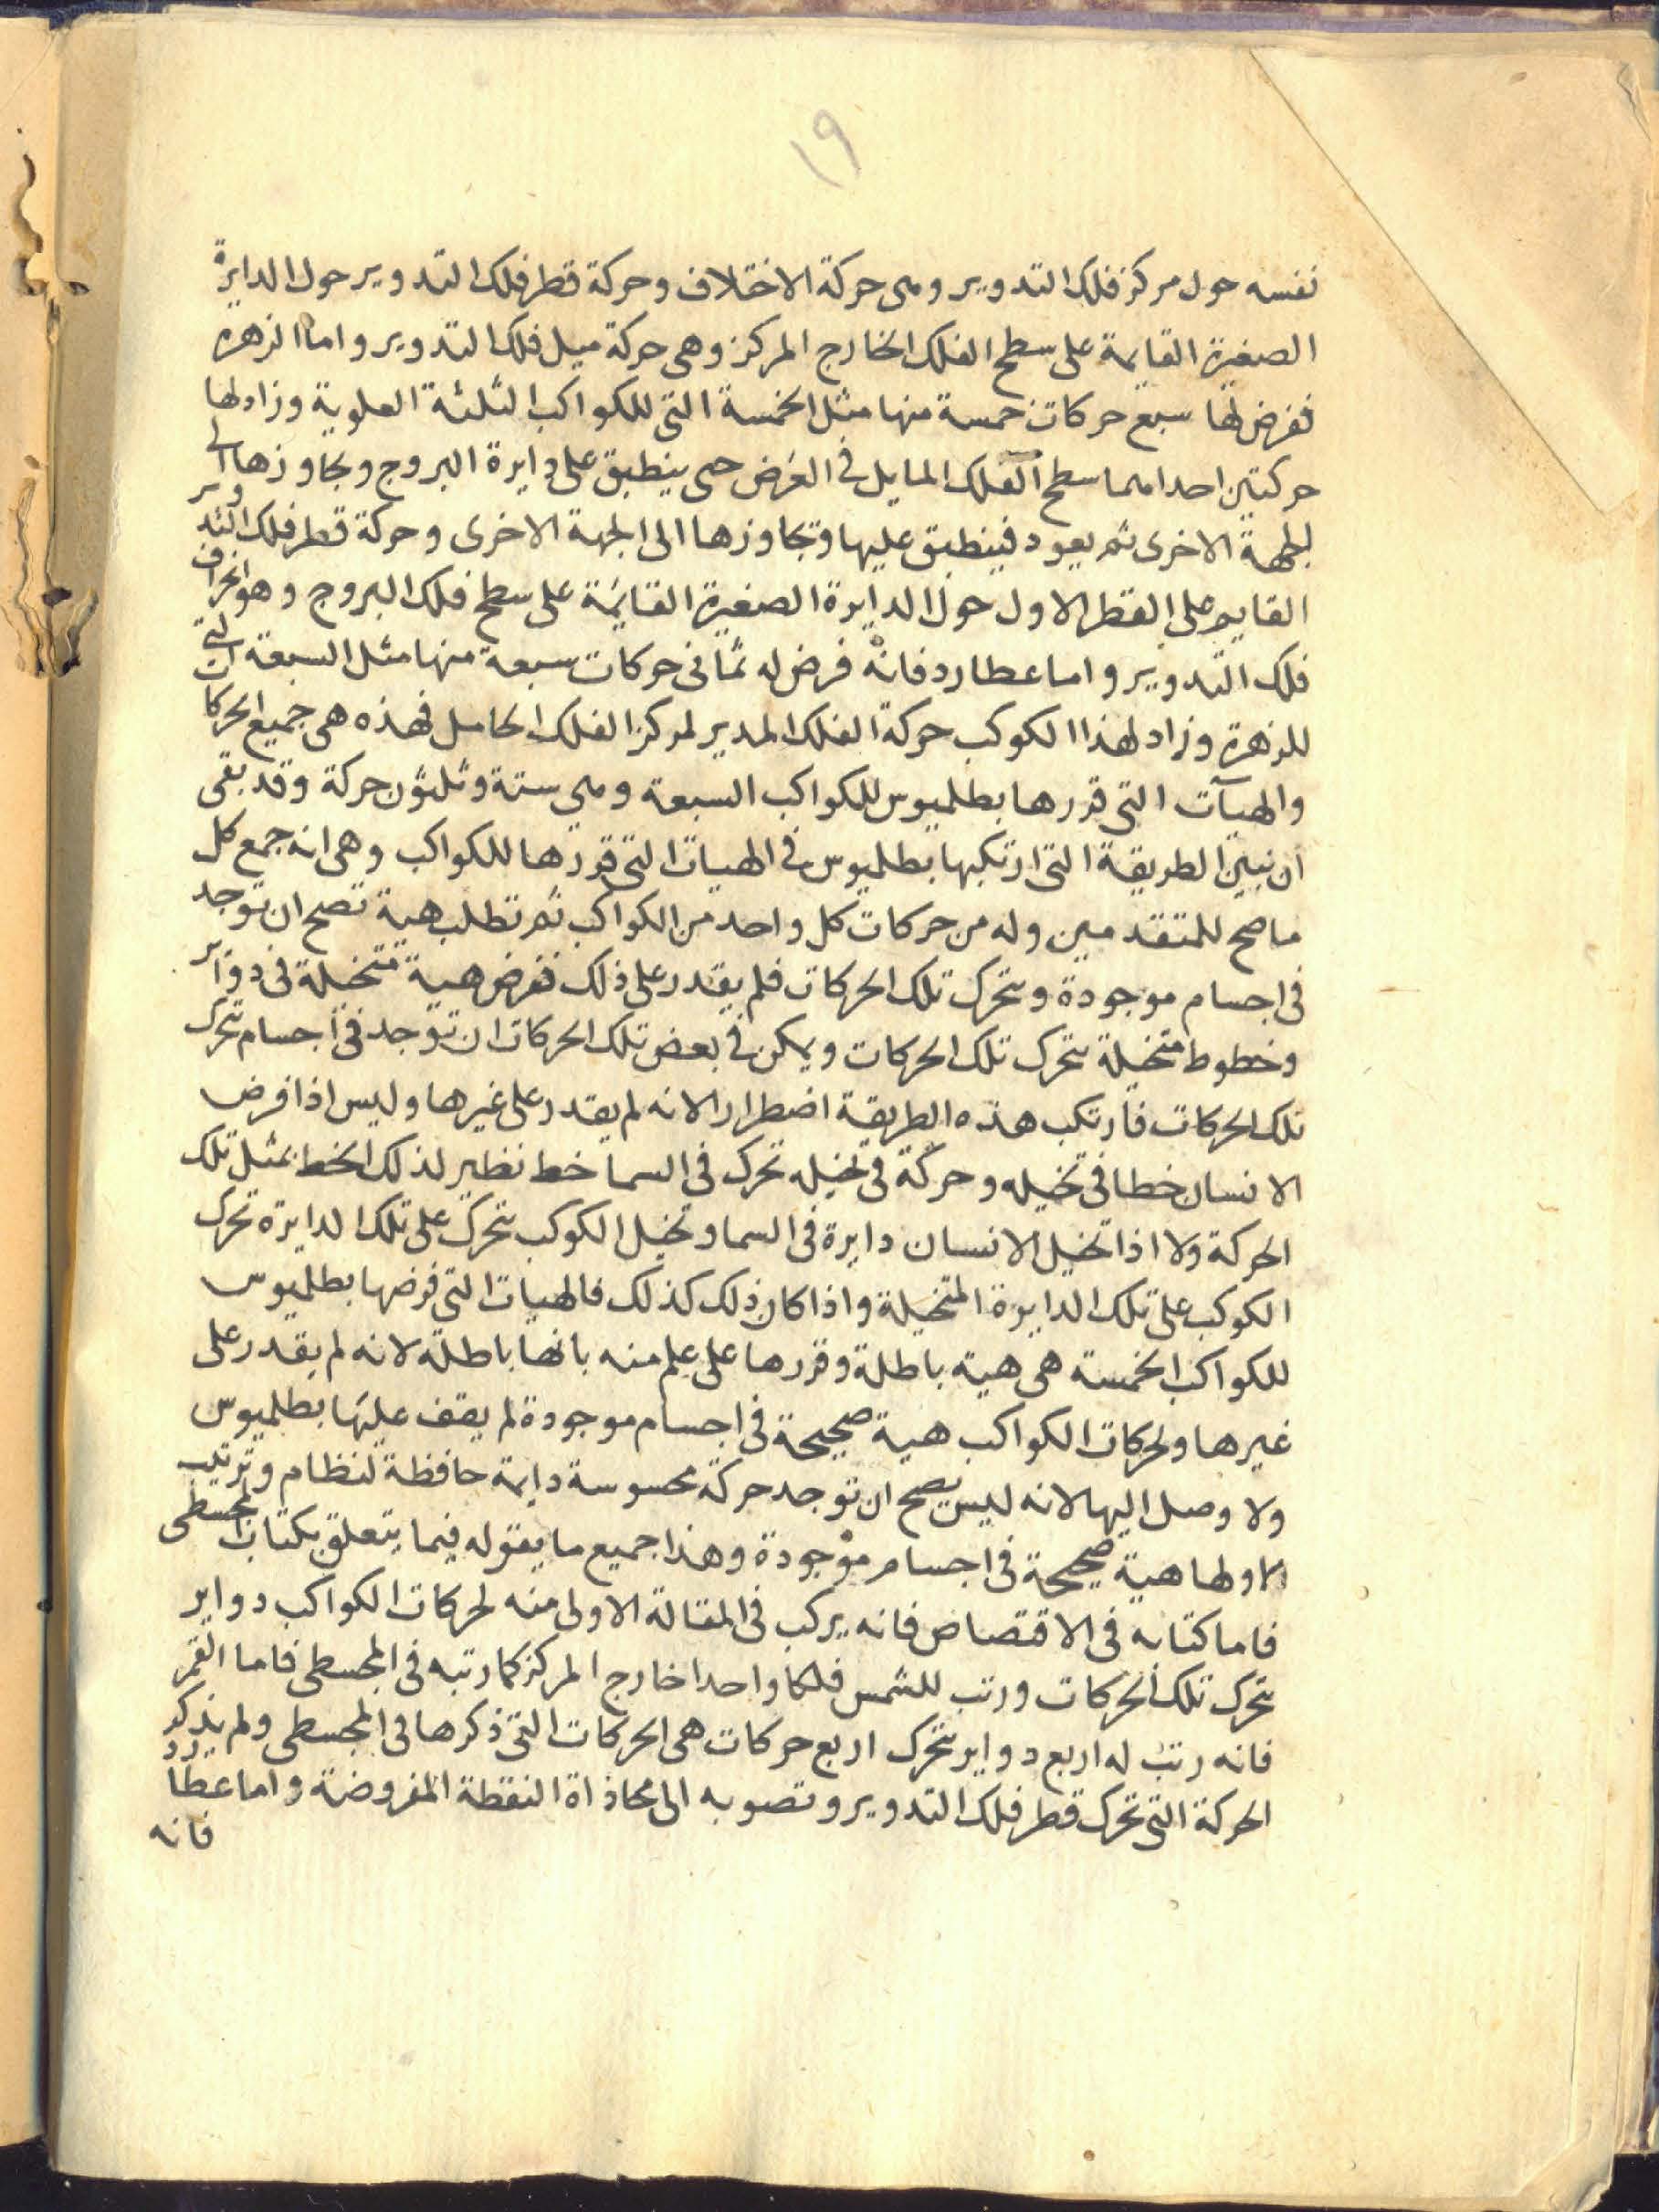 ١٩
نفسه حول مركز فلك التدوير وهى حركة الاختلاف وحركة قطر فلك التدوير حول الدايرة
الصغيرة القايمة على سطح الفلك الخارج المركز وهى حركة ميل فلك التدوير واما الزهره
ففرض لها سبع حركات خمسة منها مثل الخمسة التى للكواكب الثلثة العلوية وزاد لها
حركتين احداهما سطح الفلك المايل فى العرض حتى ينطبق على دايرة البروج ويجاوزها الى
الجهة الاخرى ثم يعود فينطبق عليها وتجاوزها الى الجهة الاخرى وحركة قطر فلك التدوير
القايم على القطر الاول حول الدايرة الصغيرة القايمة على سطح فلك البروج وهو انحراف
فلك التدوير واما عطارد فانه فرض له ثمانى حركات سبعة منها مثل السبعة التى
للزهرة وزاد لهذا الكوكب حركة الفلك المدير لمركز الفلك الحامل فهذه هى جميع الحركات
والهيآت التى قررها بطلميوس للكواكب السبعة وهى ستة وثلثون حركة وقد بقى
ان نبين الطريقة التى ارتكبها بطلميوس فى الهيات التى قررها للكواكب وهى انه جمع كل
ما صح للمتقدمين وله من حركات كل واحد من الكواكب ثم تطلب هية تصح ان توجد
فى اجسام موجودة وتتحرك تلك الحركات فلم يقدر على ذلك ففرض هية متخيلة فى دواير
وخطوط متخيلة تتحرك تلك الحركات ويمكن فى بعض تلك الحركات ان توجد فى اجسام تتحرك
تلك الحركات فارتكب هذه الطريقة اضطرارا لانه لم يقدر على غيرها وليس اذا فرض
الانسان خطا فى تخيله وحركة فى تخيله تحرك فى السما خط نظير لذلك الخط بمثل تلك
الحركة ولا اذا تخيل الانسان دايرة فى السما وتخيل الكوكب تتحرك على تلك الدايرة تحرك
الكوكب على تلك الدايرة المتخيلة واذا كان ذلك كذلك فالهيات التى فرضها بطلميوس
للكواكب الخمسة هى هية باطلة وقررها على علم منه بانها باطلة لانه لم يقدر على
غيرها ولحركات الكواكب هية صحيحة فى اجسام موجودة لم يقف عليها بطلميوس
ولا وصل اليها لانه ليس يصح ان توجد حركة محسوسة دايمة حافظة لنظام وترتيب
الا ولها هية صحيحة فى اجسام موجودة وهذا جميع ما يقوله فيما يتعلق بكتاب المجسطى
فاما كتابه فى الاقتصاص فانه يركب فى المقالة الاولى منه لحركات الكواكب دواير
تتحرك تلك الحركات ورتب للشمس فلكا واحدا خارج المركز كما رتبه فى المجسطى فاما القمر
فانه رتب له اربع دواير تتحرك اربع حركات هى الحركات التى ذكرها فى المجسطى ولم يذكر
الحركة التى تحرك قطر فلك التدوير وتصوبه الى محاذاة النقطة المفروضة واما عطارد
فانه